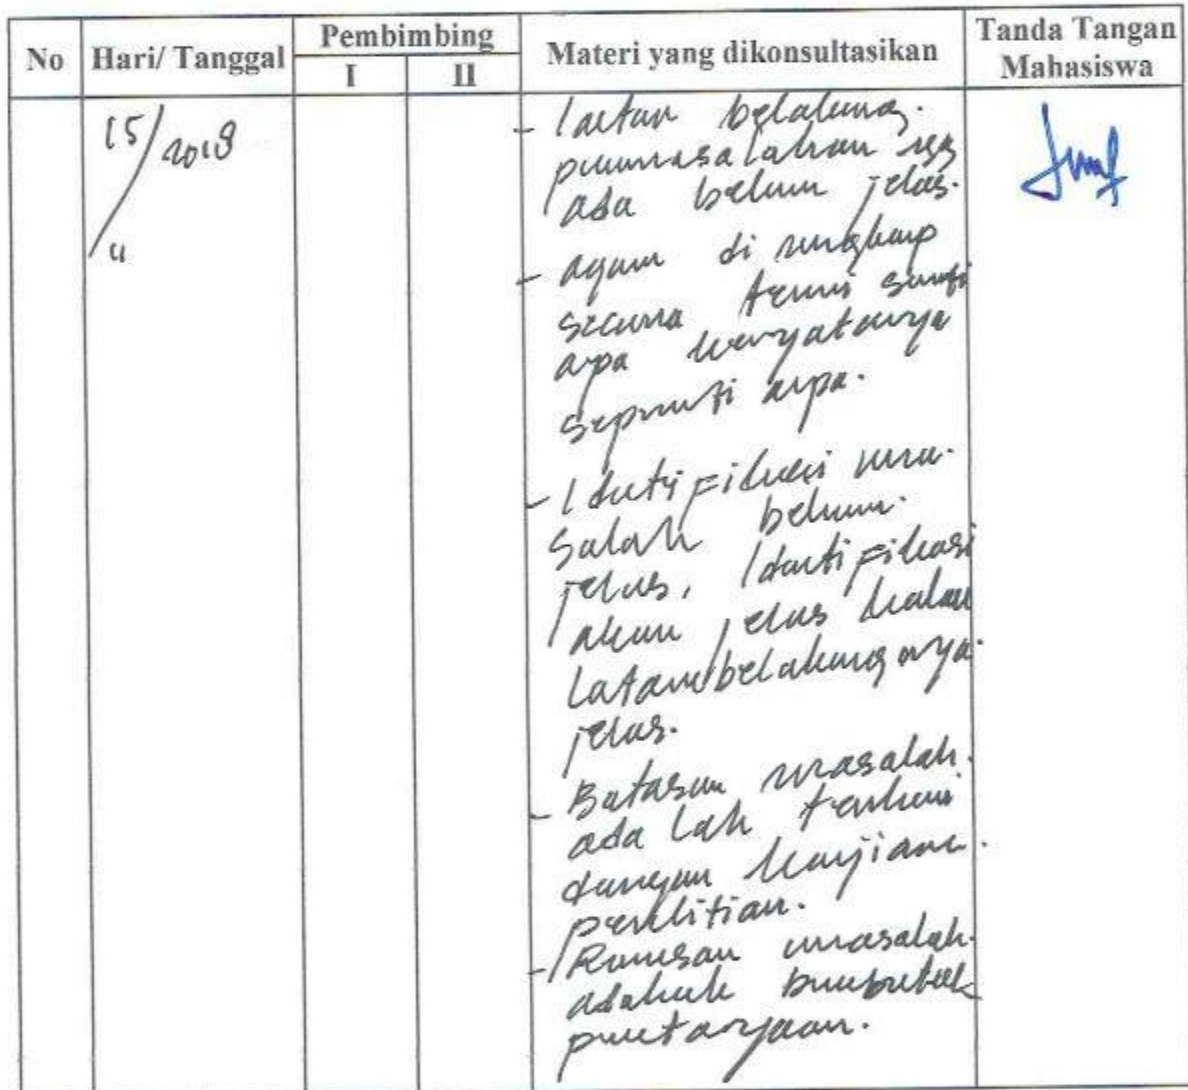 No Hari/ Tanggal Pembimbing Materi yang dikonsultasikan Tanda Tangan Mahasiswa
I II
15/2018
11
- latar belakang.
permasalahan yg
ada belum jelas.
- agar di ungkap
secara
apa kenyatannya
seperti apa.
- Identifikasi ma-
salah belum.
jelas, Identifikasi
akan jelas kalau
latar belakang nya.
jelas.
- Batasan masalah.
ada lah
dengan kajian.
penelitian.
- Rumusan masalah.
adalah berbentuk
pertanyaan.